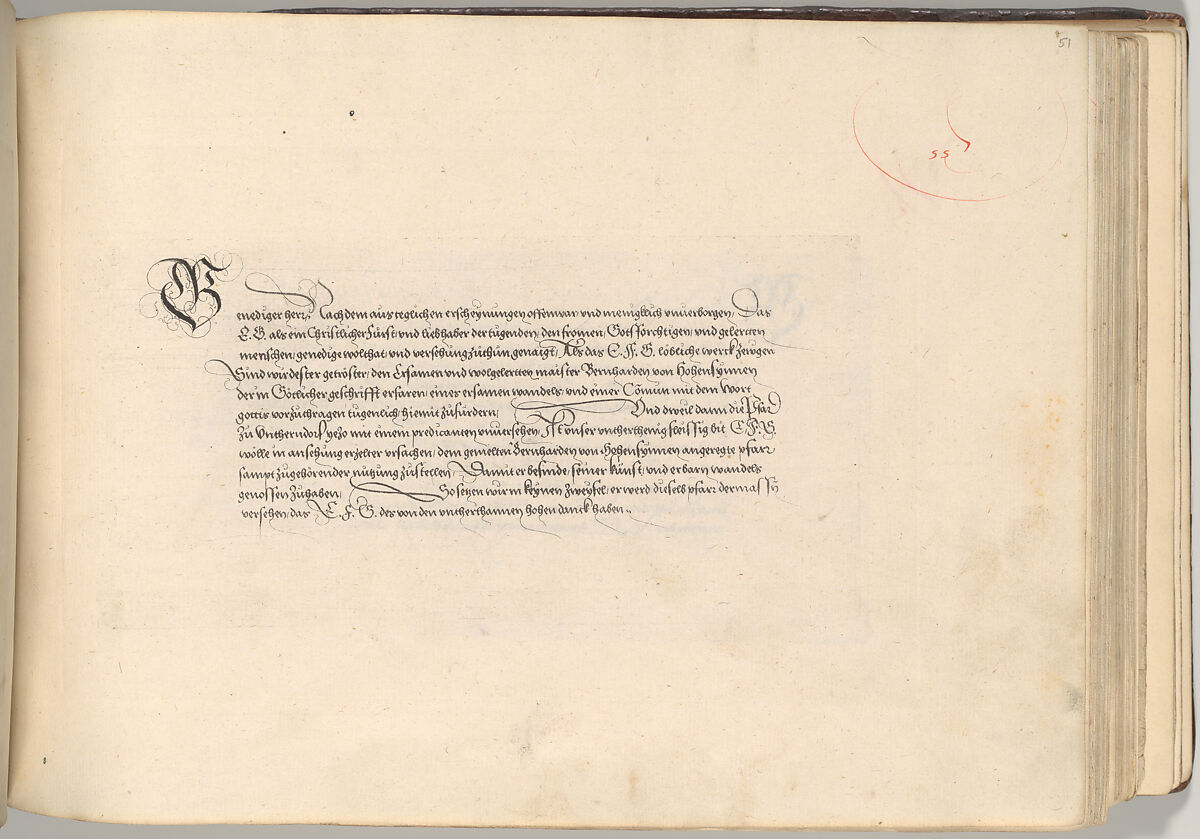 51
55
Genediger herr, Nachdem aus teglichen erscheynungen offenwar, vnd meniglich vnuerborgen, Das
E. G. als ein Christlicher Fürst vnd liebhaber der tugenden, den fromen, Gotsforchtigen, vnd gelertten
menschen, genedige wolthat vnd versehung zuthun genaigt, Als das E. F. G. löbliche werck zewgen
Sind wir dester getröster, den Ersamen vnd wolgelertten maister Bernharden von Hohensynnen
der in Götlicher geschrifft erfaren, eines ersamen wandels, vnd einer Comun mit dem wort
gottis vorzuthragen tugenlich, hiemit zufürdern, Vnd dweil dann die Pfar
zu Vntherndorf yezo mit einem predicanten vnuersehen, Ist vnser vntherthenig fleissig bit E. F. G.
wölle in ansehung erzelter vrsachen, dem gemelten Bernharden von Hohensynnen angeregte pfarr
sampt zugehörender nutzung zustellen, Damit er befinde, seiner künst, vnd erbarn wandels
genossen zuhaben, So setzen wir in keynen zweyfel, er werd diesels pfarr dermassn
versehen, das E. F. G. des von den vntherthannen hohen danck haben.